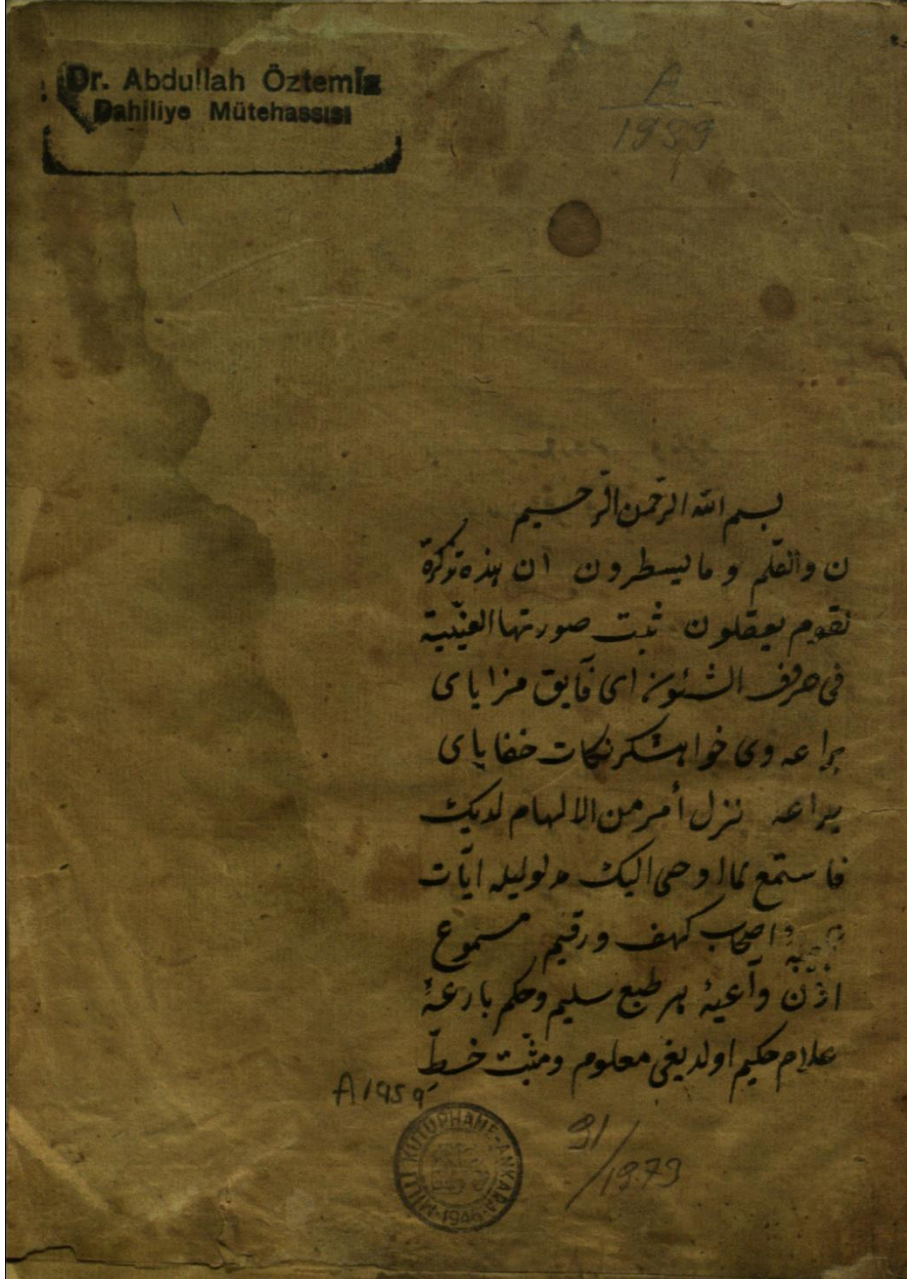 Dr. Abdullah Öztemiz
Dahiliye Mütehassısı
A
1959
بسم الله الرّحمن الرّحيم
ن والقلم وما يسطرون ان هذه تذكرة
لقوم يعقلون ثبت صورتها العينيّة
فى صرف الشئون اى فآيق مزاياى
براعه وى خواهشكر نكات خفاياى
يراعه نزل أمر من الالهام لديك
فاستمع لما اوحى اليك مدلوليله ايآت
واصحاب كهف ورقيم مسموع
اذن وآعيۀ هر طبع سليم وحكم بارعۀ
علام حكيم اولديغى معلوم ومثبت خطّ
A 1959
MİLLİ KÜTÜPHANE-ANKARA
1946
91/1979